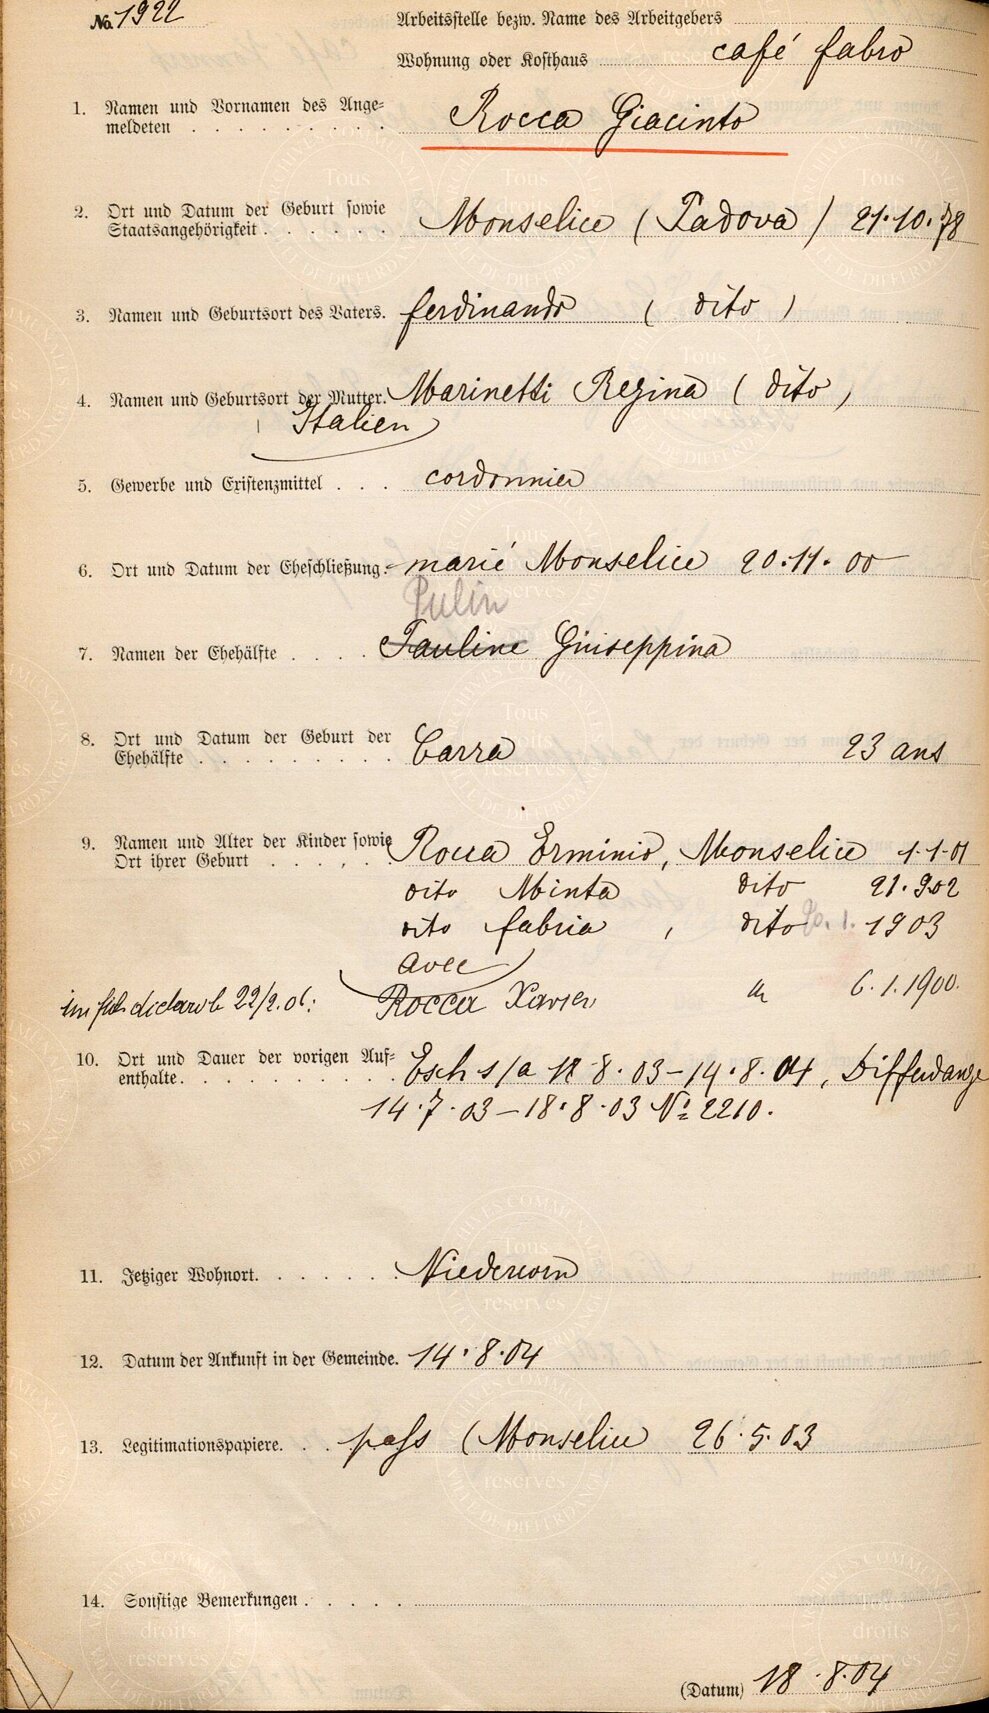 No. 1922
Arbeitsstelle bezw. Name des Arbeitgebers
Wohnung oder Kosthaus café fabro
1. Namen und Vornamen des Ange=
meldeten Rocca Giacinto
2. Ort und Datum der Geburt sowie
Staatsangehörigkeit Monselice (Padova) 21.10.78
3. Namen und Geburtsort des Vaters. ferdinando (dito)
4. Namen und Geburtsort der Mutter. Marinetti Regina (dito)
Italien
5. Gewerbe und Existenzmittel cordonnier
6. Ort und Datum der Eheschließung. marié Monselice 20.11.00
Pulin
7. Namen der Ehehälfte Pauline Giuseppina
8. Ort und Datum der Geburt der
Ehehälfte Carra 23 ans
9. Namen und Alter der Kinder sowie
Ort ihrer Geburt Rocca Erminio, Monselice 1.1.01
dito Minta dito 21.902
dito fabria, dito 1903
avec
22/2.06: Rocca Xavier 6.1.1900.
10. Ort und Dauer der vorigen Auf=
enthalte. Esch s/a 18.8.03-14.8.04, Differdange
14.7.03-18.8.03 No 2210.
11. Jetziger Wohnort. Niedercorn
12. Datum der Ankunft in der Gemeinde. 14.8.04
13. Legitimationspapiere. pass (Monselice 26.5.03
14. Sonstige Bemerkungen
(Datum) 18.8.04